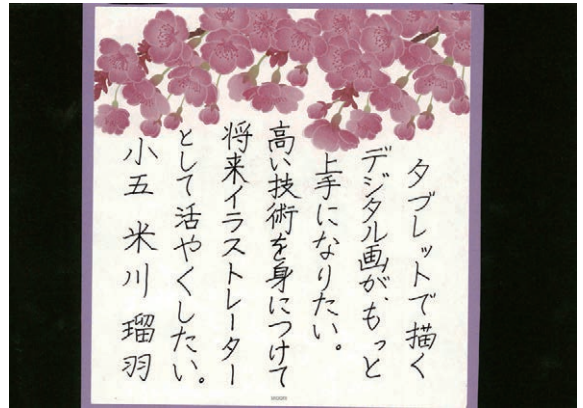 タブレットで描く
デジタル画が、もっと
上手になりたい。
高い技術を身につけて
将来イラストレーター
として活やくしたい。
小五 米川 瑠羽